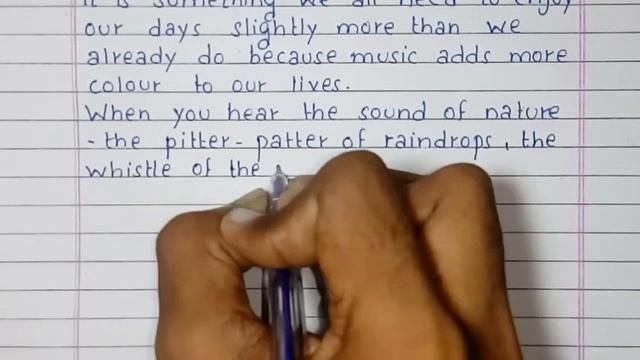 it is something we all need to enjoy
our days slightly more than we
already do because music adds more
colour to our lives.
When you hear the sound of nature
- the pitter - patter of raindrops, the
whistle of the